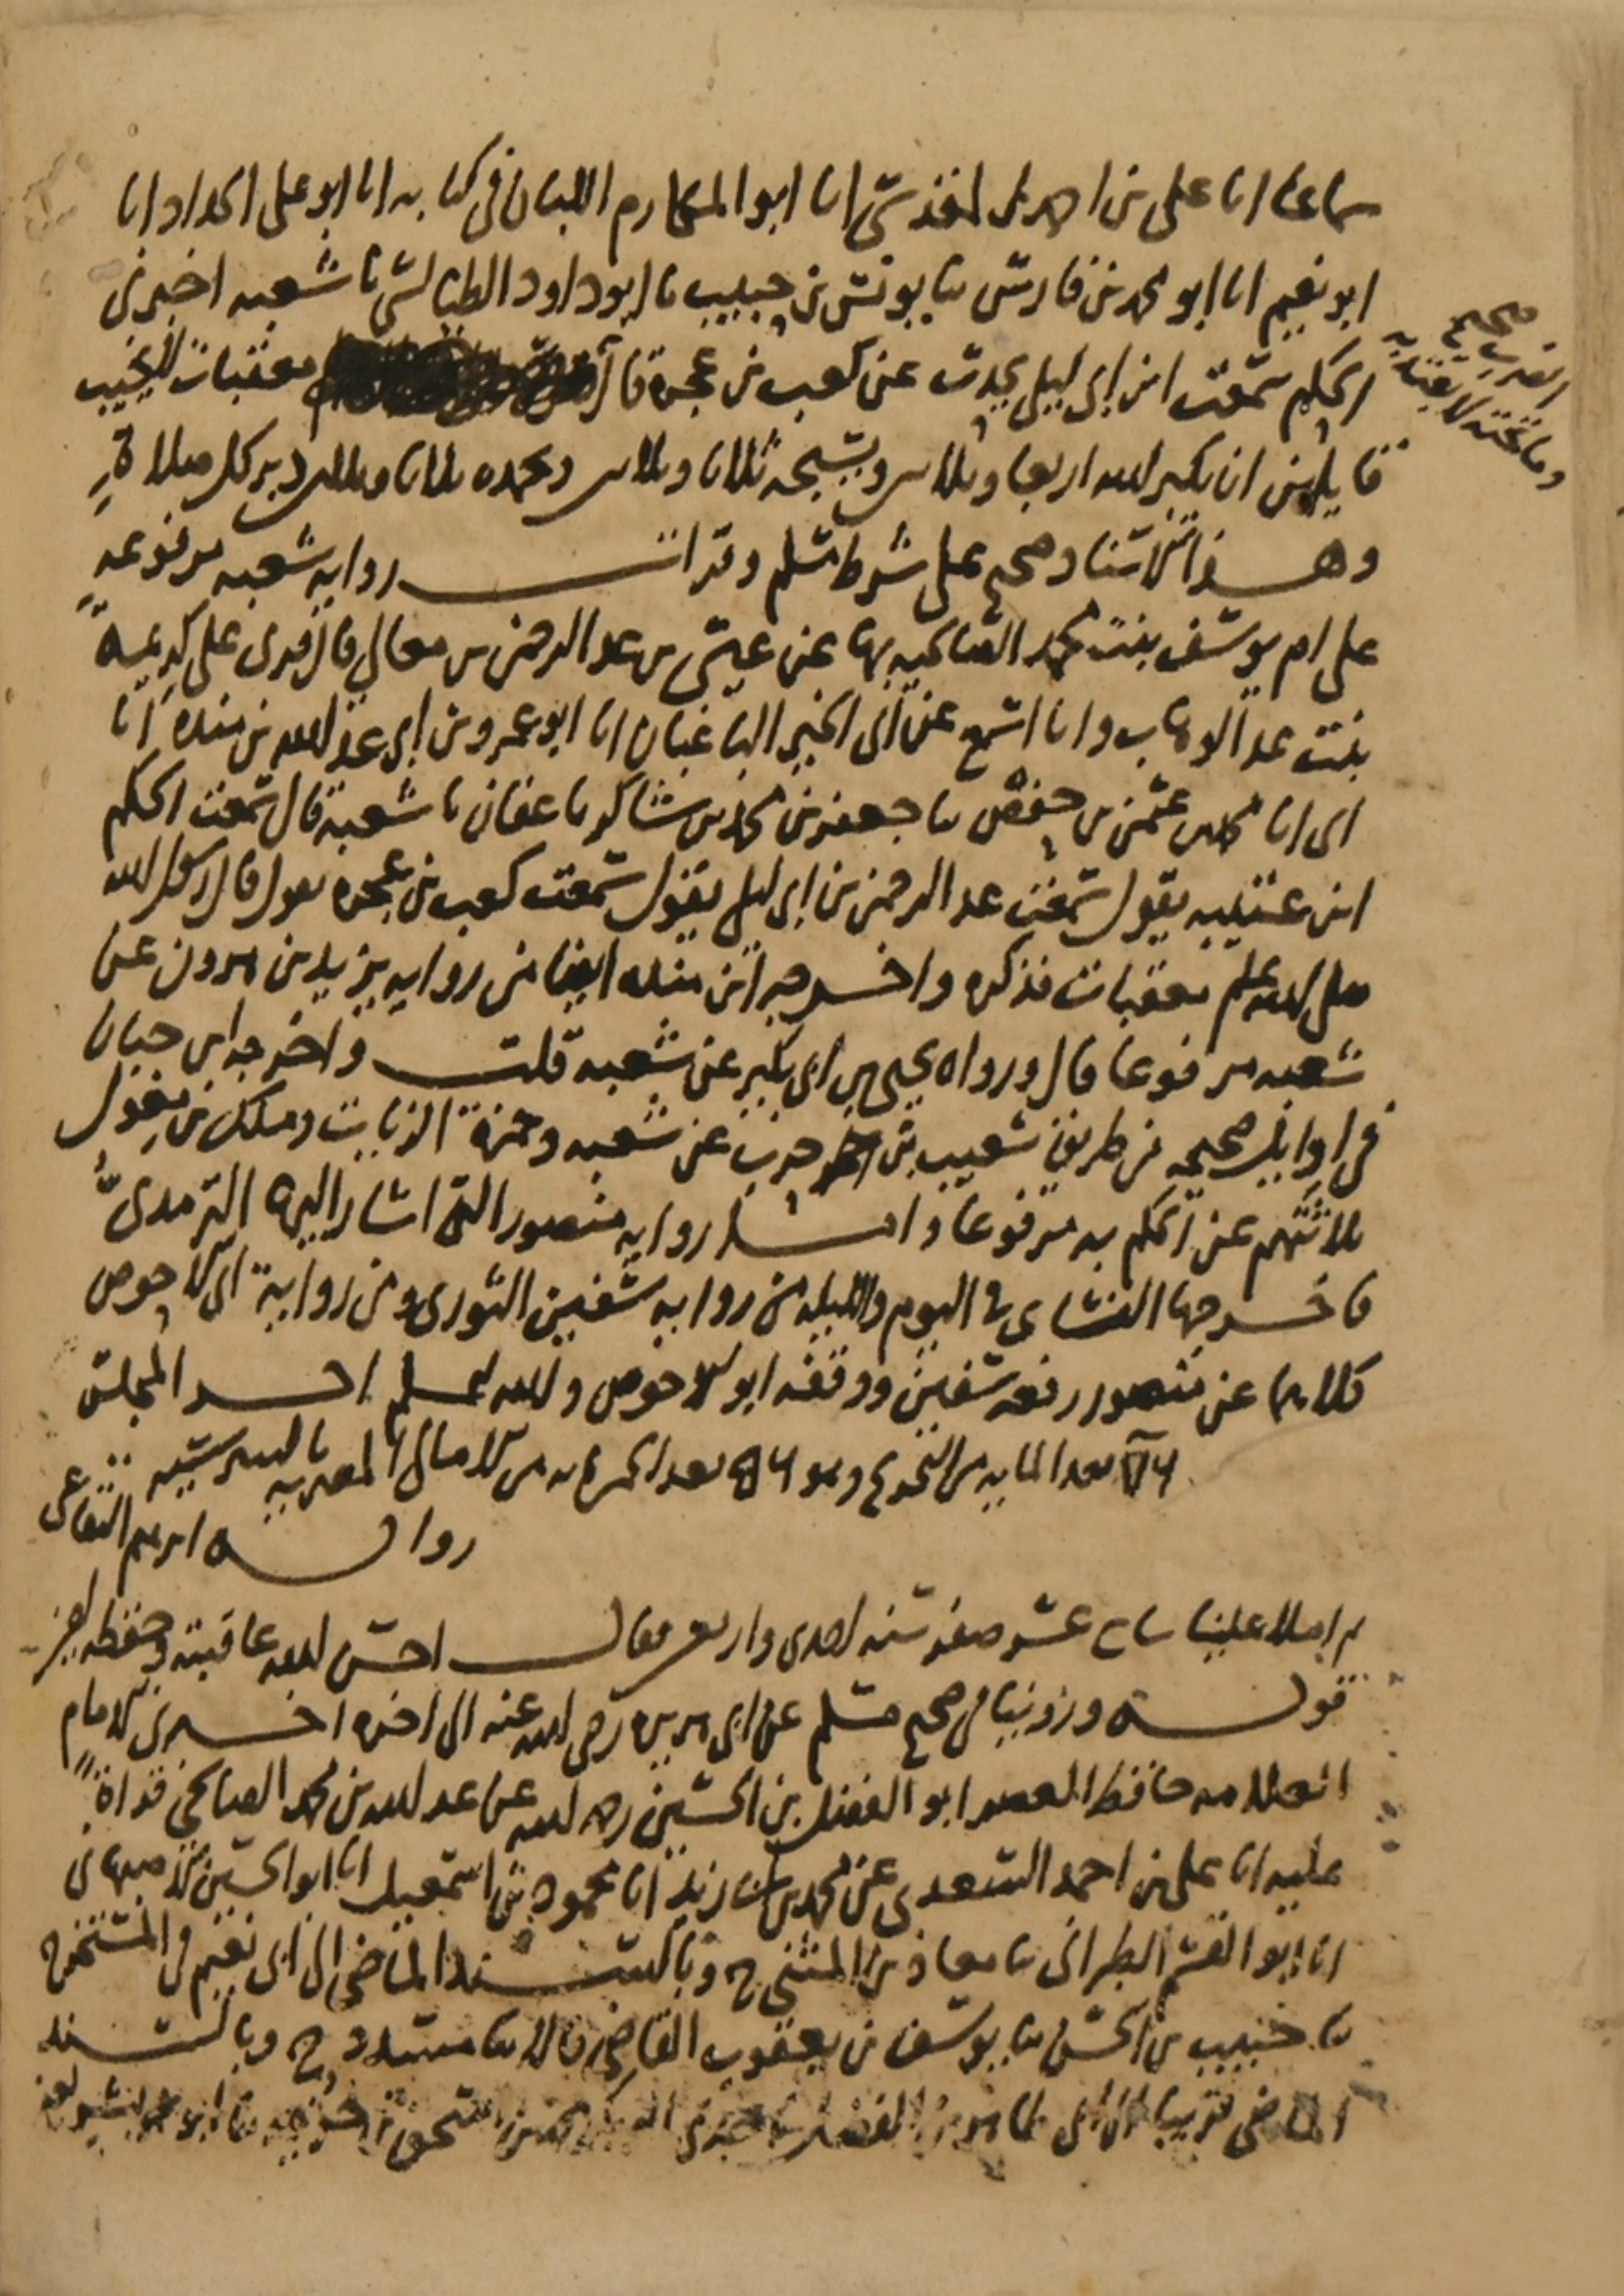 سماعا انا على بن احمد المقدسى انا ابو المكارم اللبان فى كتابه انا ابو على الحداد انا
ابو نعيم انا ابو محمد بن فارس ثنا يونس بن حبيب نا ابو داود الطيالسى نا شعبه اخبرنى
الحكم سمعت ابن ابى ليلى يحدث عن كعب بن عجره قال معقبات لا يخيب
قايلهن ان يكبر الله اربعا وثلاثين ويسبحه ثلاثا وثلاثين ويحمده ثلاثا وثلاثين دبر كل صلاة
وهذا الاسناد صحيح على شرط مسلم وقد رواية شعبه مرفوعه
على ام يوسف بنت محمد الصالحيه بها عن عيسى بن عبد الرحمن بن معالى قال قرى على كريمة
بنت عبد الوهاب وانا اسمع عن ابى الخير الباغبان انا ابو عمرو بن ابى عبد الله بن منده انا
ابى انا محمد بن عثمن بن حفص ثنا جعفر بن محمد بن شاكر نا عفان نا شعبة قال سمعت الحكم
ابن عتيبه يقول سمعت عبد الرحمن بن ابى ليلى يقول سمعت كعب بن عجره يقول قال رسول الله
صلى الله عليه وسلم معقبات فذكره واخرجه ابن منده ايضا من رواية يزيد بن هرون عن
شعبه مرفوعا قال ورواه يحيى بن ابى بكير عن شعبه قلت واخرجه ابن حبان
فى اوايل صحيحه من طريق شعيب بن حرب عن شعبه وحمزة الزيات ومالك بن مغول
ثلاثتهم عن الحكم به مرفوعا واما رواية منصور التى اشار اليها الترمدى
فاخرجها النساى فى اليوم والليله من رواية سفين الثورى ومن رواية ابى الاحوص
كلاهما عن منصور رفعه سفين ووقفه ابو الاحوص والله اعلم اخر المجلس
بعد المايه من التخريج وهو بعد من الامالى المصريه بالبيبرسيه
رواية ابرهيم البقاعى
املا علينا سابع عشر صفر سنه احدى واربعين فقال احسن الله عاقبته وحفظه
قوله وروينا فى صحيح مسلم عن ابى هريره رضى الله عنه الى اخره اخبرنى الامام
العلامه حافظ العصر ابو الفضل بن الحسين رحمه الله عن عبد الله بن محمد الصالحى قراة
عليه انا على بن احمد السعدى عن محمد بن ابى زيد انا محمود بن اسمعيل انا ابو الحسين الاصبهانى
انا ابو القسم الطبرانى ثنا معاذ بن المثنى ح وبالسند الماضى الى ابى نعيم فى المستخرج
ثنا حبيب بن الحسن ثنا يوسف بن يعقوب القاضى قالا ثنا مسدد ح وبالسند
الماضى قريبا الى ابى طاهر بن الفضل
صحيح